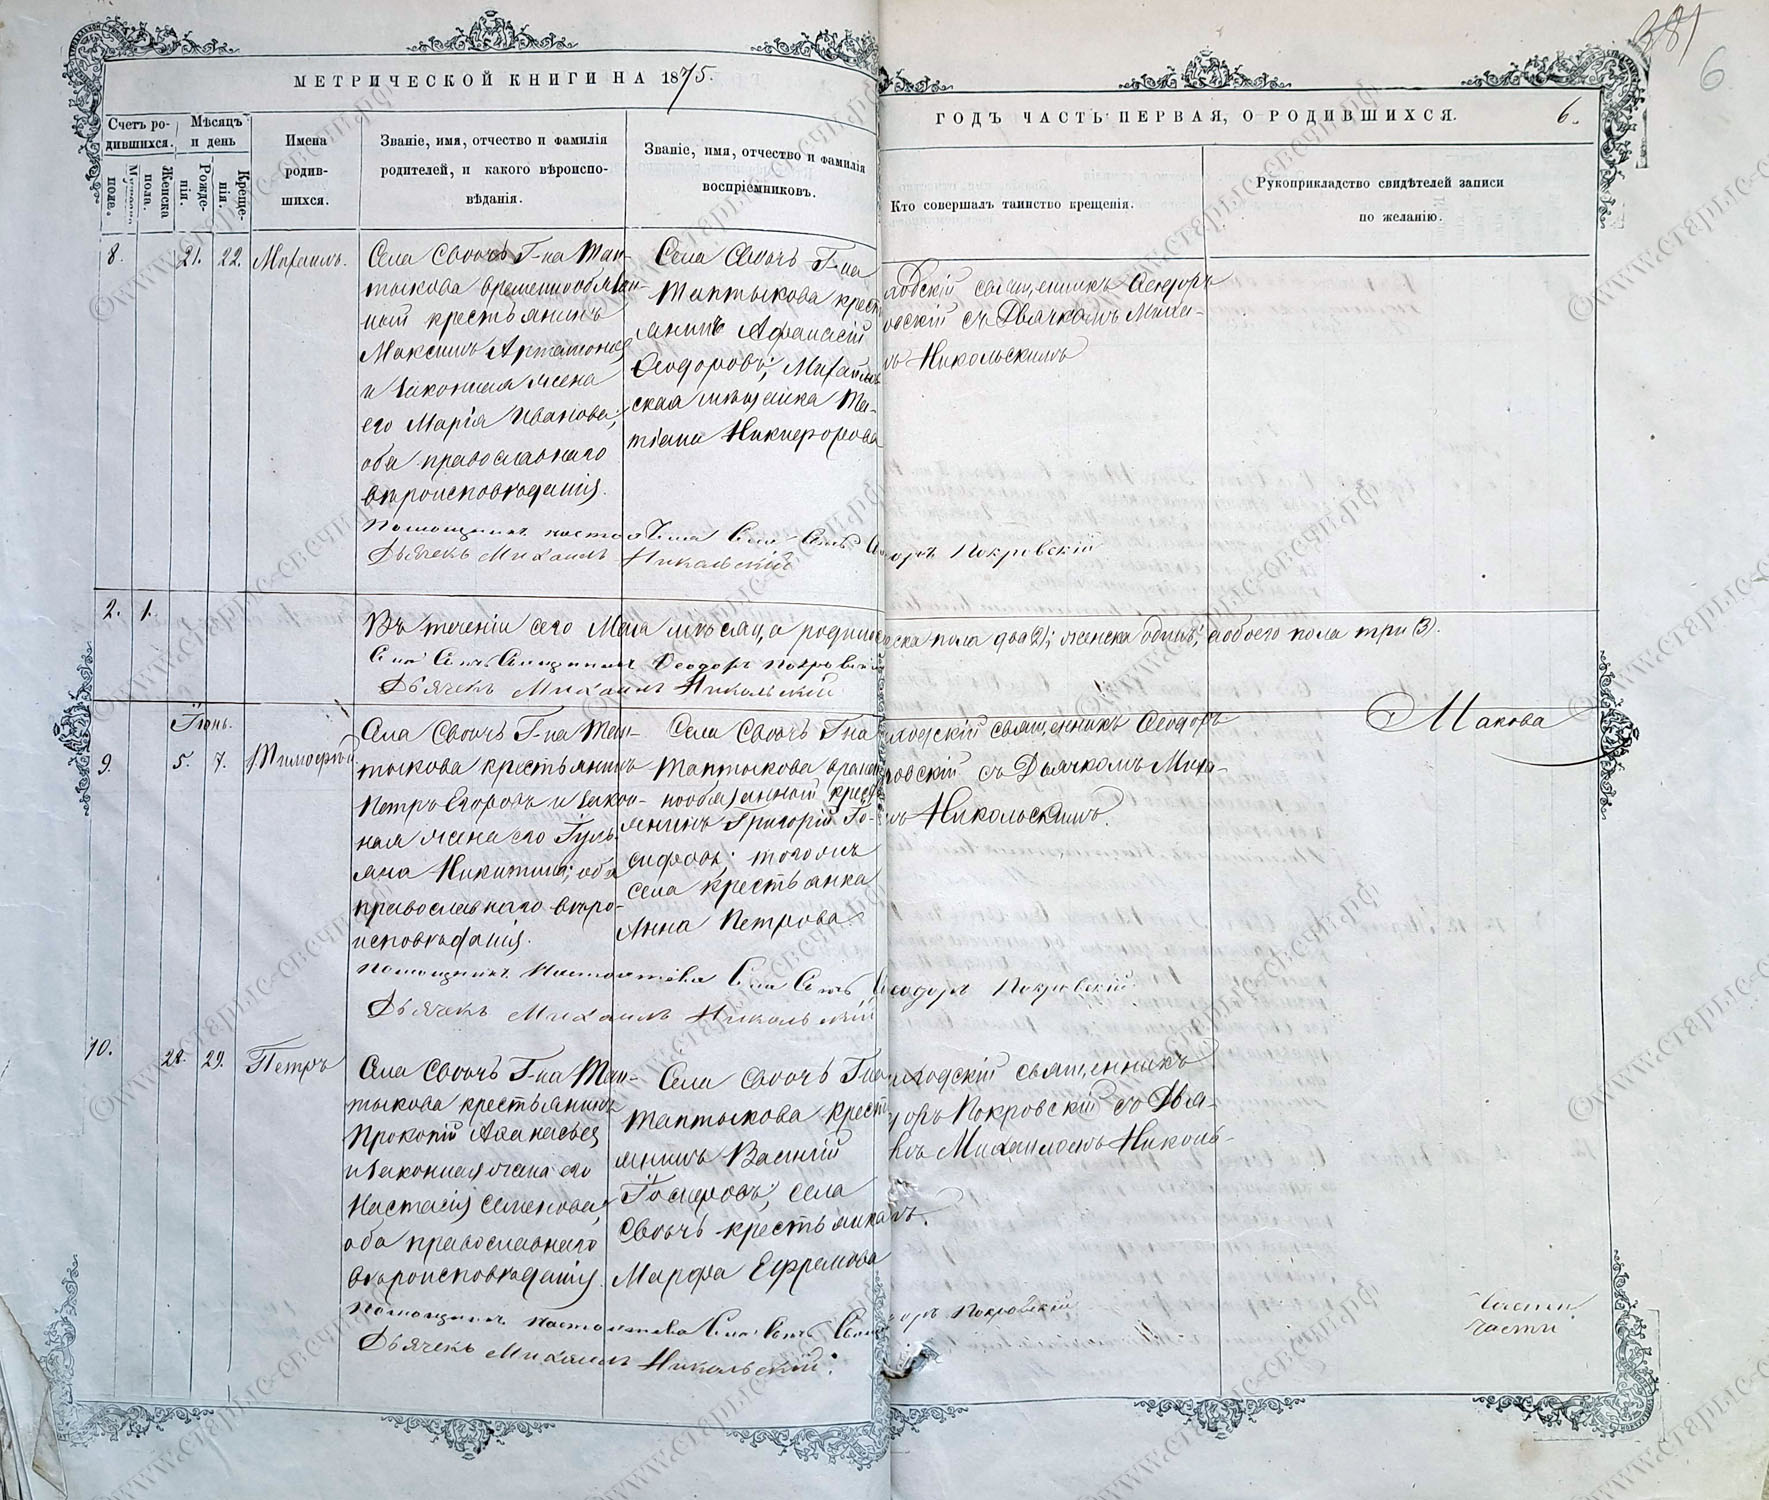 381
6
МЕТРИЧЕСКОЙ КНИГИ НА 1875.
ГОДЪ ЧАСТЬ ПЕРВАЯ, О РОДИВШИХСЯ.
6.
Счетъ ро-
дившихся.
Мѣсяцъ
и день
Мужеска
поле.
Женска
пола.
Рожде-
нія.
Креще-
нія.
Имена
родив-
шихся.
Званіе, имя, отчество и фамилія
родителей, и какого вѣроиспо-
вѣданія.
Званіе, имя, отчество и фамилія
воспріемниковъ.
Кто совершалъ таинство крещенія.
Рукоприкладство свидѣтелей записи
по желанію.
8.
21.
22.
Михаилъ.
Села Своочь Г-на Тап-
тыкова временнообязан-
ный крестьянинъ
Максимъ Артамоновъ
и законная жена
его Марія Иванова;
оба православнаго
вѣроисповѣданія.
Села Своочь Г-на
Таптыкова крест
янинъ Афанасій
Ѳеодоровъ; Михайлов
ская мѣщанка Та-
тіана Никифорова
священникъ Ѳеодоръ
овскій съ Дьячкомъ Миха-
лъ Никольскимъ
Помощникъ настоятеля
оръ Покровскій
Дьячекъ Михаилъ Никольскій
2.
1.
Въ теченіи сего Мая мѣсяца родилось
ска пола два (2); женска одинъ; обоего пола три (3).
Священникъ Ѳеодоръ Покровскій
Дьячекъ Михаилъ Никольскій
Іюнь.
9.
5.
7.
Тимофей
Села Своочь Г-на Тап-
тыкова крестьянинъ
Петръ Егоровъ и закон-
ная жена его Іуль
яна Никитина; оба
православнаго вѣро-
исповѣданія.
Села Своочь Г-на
Таптыкова времен
нообязанный крест
янинъ Григорій Іо-
сифовъ; тогоже
села крестьянка
Анна Петрова
священникъ Ѳеодоръ
ровскій съ Дьячкомъ Миха-
лъ Никольскимъ.
Макова
Помощникъ Настоятеля
Ѳеодоръ Покровскій
Дьячекъ Михаилъ Никольскій
10.
28.
29.
Петръ
Села Своочь Г-на Тап-
тыкова крестьянинъ
Прокопій Афанасьевъ
и законная жена его
Настасія Семенова;
оба православнаго
вѣроисповѣданія.
Села Своочь Г-на
Таптыкова крест
янинъ Василій
Іосифовъ; села
Своочь крестьянка
Марфа Ефремова
священникъ
доръ Покровскій съ Дья-
комъ Михаиломъ Николь-
мъ.
Помощникъ настоятеля
оръ Покровскій
Дьячекъ Михаилъ Никольскій.
части
©www.старыс-свсчи.рф